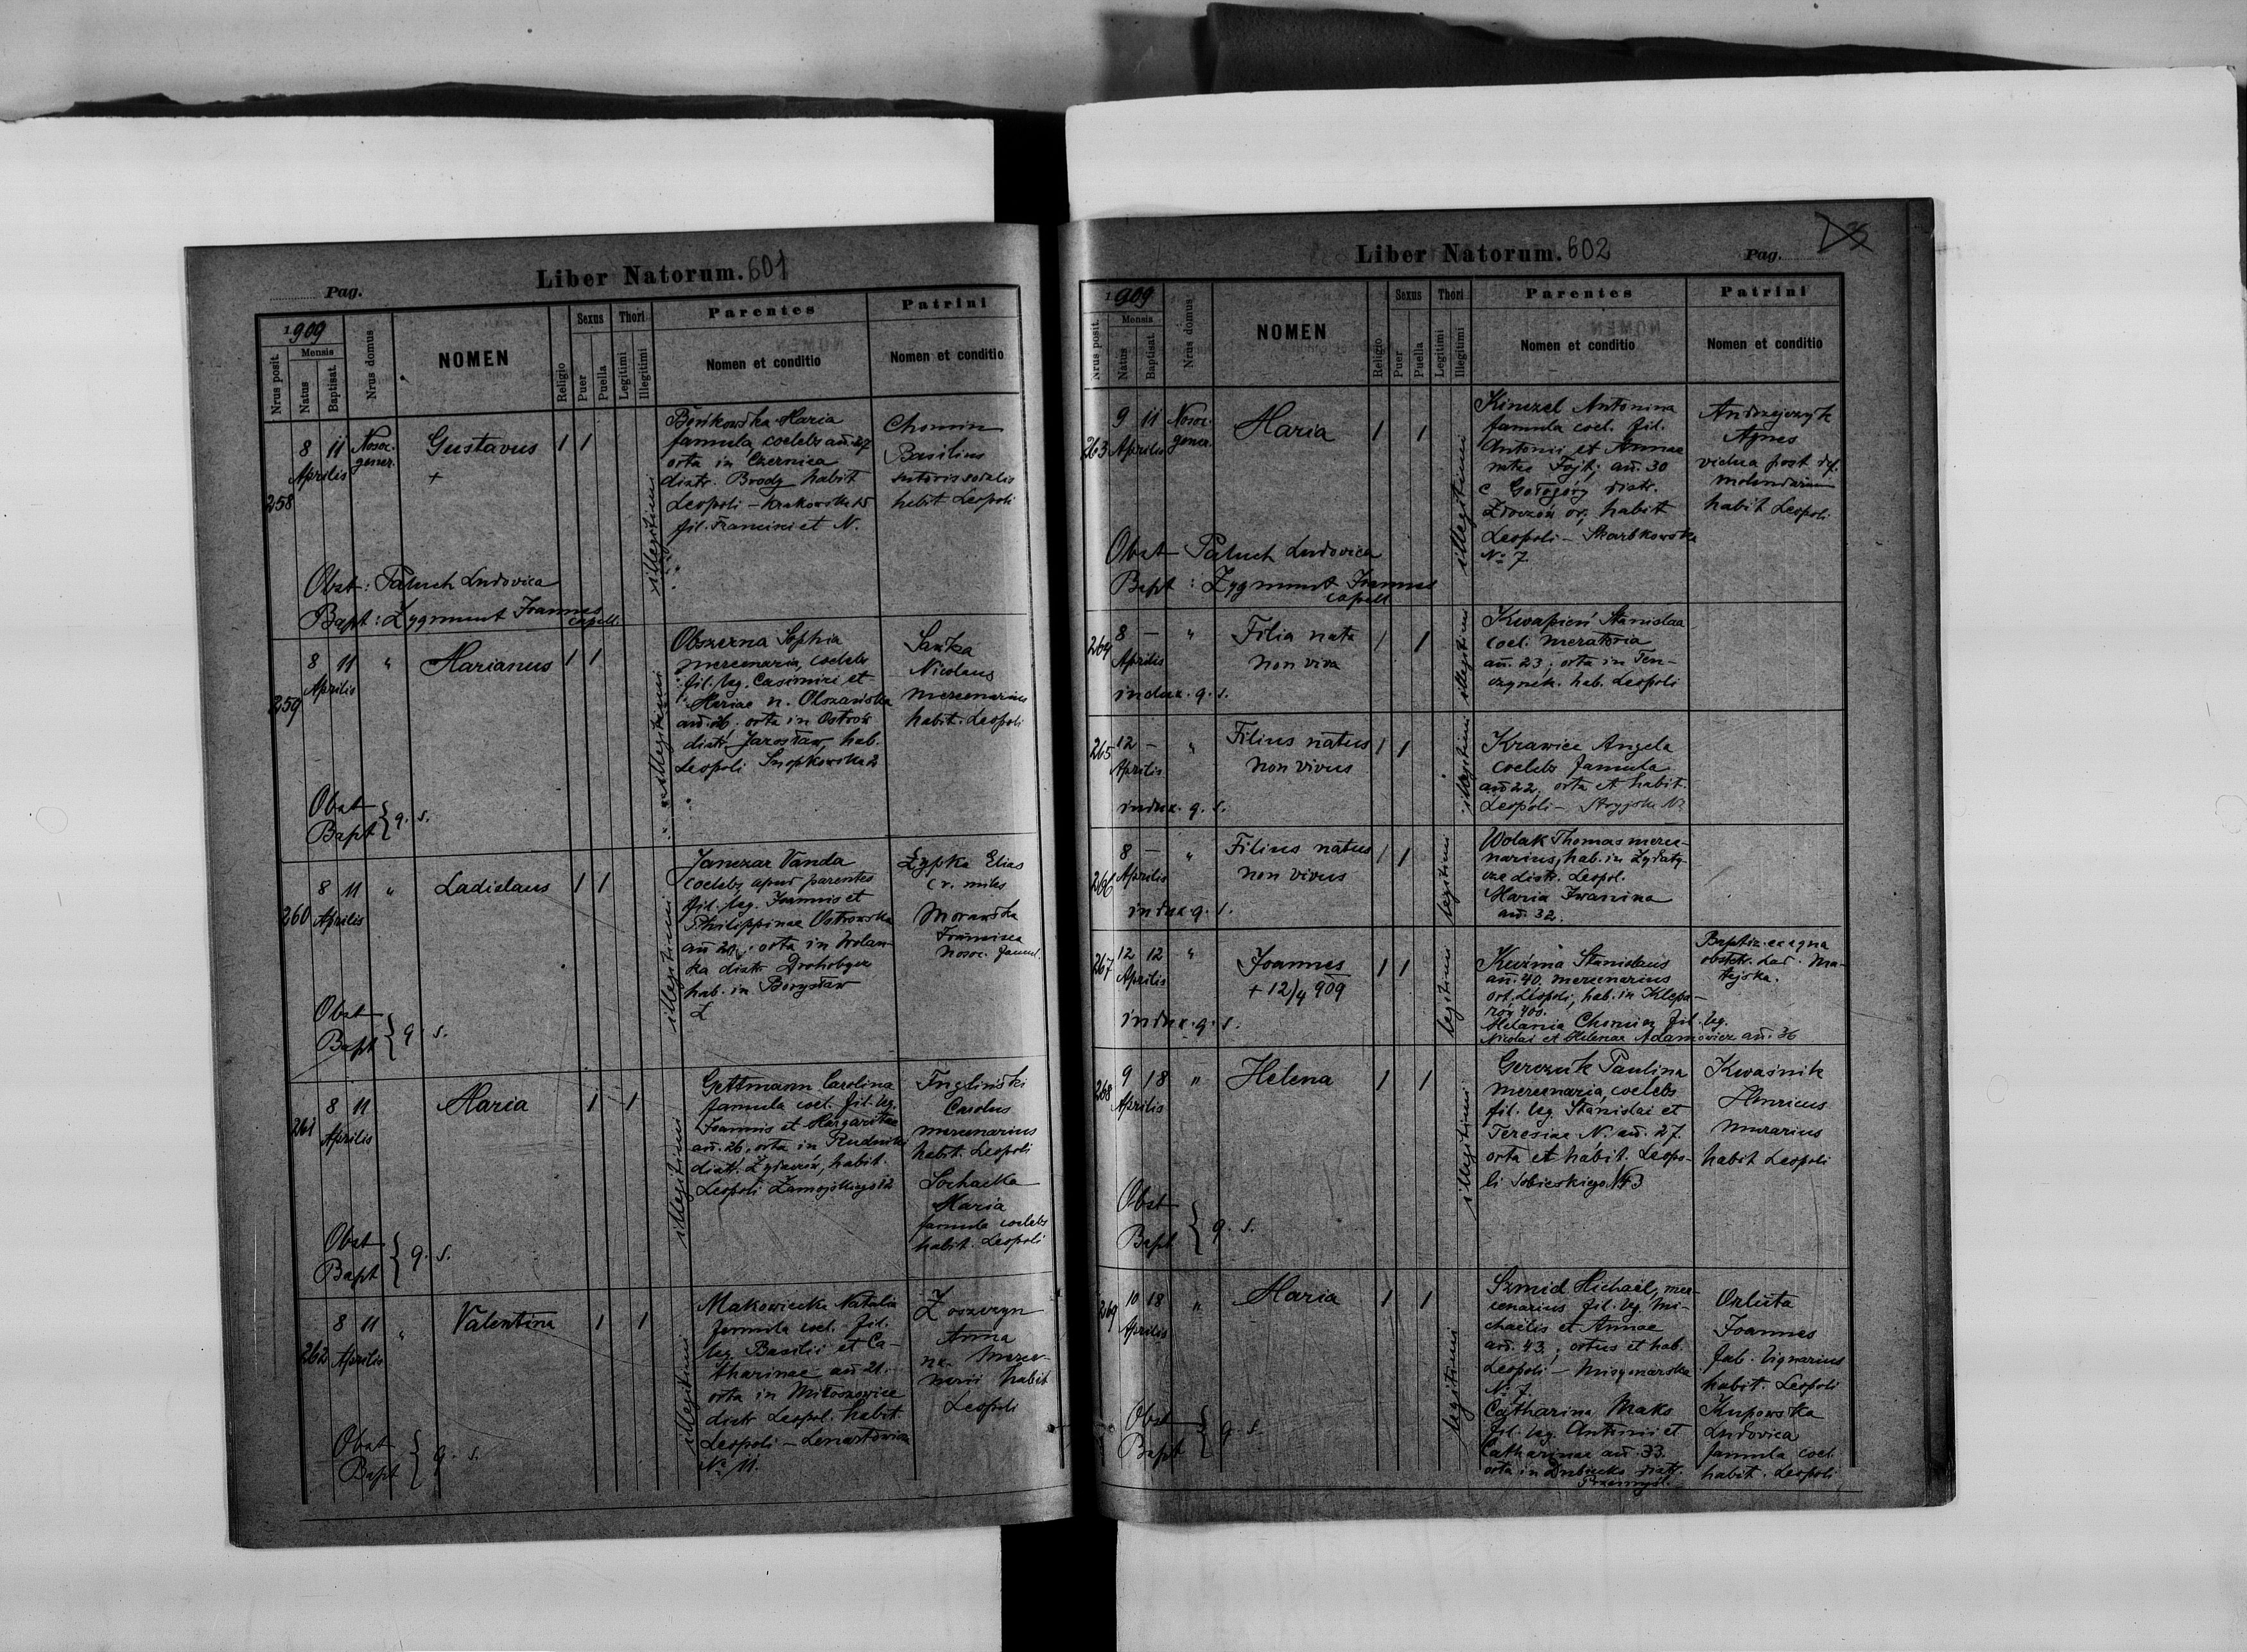 Pag.
Liber Natorum. 601
1909
Nrus posit.
Mensis
Natus
Baptisat.
Nrus domus
NOMEN
Religio
Sexus
Puer
Puella
Thori
Legitimi
Illegitimi
Parentes
Nomen et conditio
Patrini
Nomen et conditio
258
8 11
Aprilis
Nosoc.
gener.
Gustavus
+
1 1
illegitimi
Maria
famula, coelebs añ. 27
orta in Czernica
distr. Brody habit
Leopoli – Krakowska 15
fil. Francisci et N.
Chomin
Basilius
sutoris sodalis
habit Leopoli
Obst: Paluch Ludovica
Bapt: Zygmunt Joannes
capell.
259
8 11 "
Aprilis
Marianus
1 1
illegitimi
Obszerna Sophia
mercenaria, coelebs
fil. leg. Casimiri et
Mariae n. Olszańska
añ. 26. orta in Ostrów
distr. Jarosław, hab.
Leopoli Snopkowska 2
Nicolaus
mercenarius
habit. Leopoli
Obst
Bapt } q. s.
260
8 11 "
Aprilis
Ladislaus
1 1
illegitimi
Janczar Vanda
coelebs apud parentes
fil. leg. Joannis et
Philippinae Ostrowska
añ 20, orta in Wolan-
ka distr. Drohobycz
hab. in Borysław
Łypka Elias
c. r. miles
Morawska
Francisca
nosoc. famul.
Obst
Bapt } q. s.
261
8 11
Aprilis
Maria
1 1
illegitimi
Gettmann Carolina
famula coel. fil. leg.
Joannis et Margaritae
añ. 26, orta in Rudniki
distr. Żydaczów, habit.
Leopoli Zamojskiego 12
Carolus
mercenarius
habit. Leopoli
Sochacka
Maria
famula coelebs
habit. Leopoli
Obst
Bapt } q. s.
262
8 11 "
Aprilis
Valentina
1 1
illegitimi
Makowiecka Natalia
famula coel. fil.
leg. Basilii et Ca-
tharinae añ 21.
orta in Miłoszowice
distr. Leopol. habit
Leopoli – Lenartowicza
No 11.
Anna
habit
Leopoli
Obst
Bapt } q. s.
Liber Natorum. 602
Pag.
1909
Nrus posit.
Mensis
Natus
Baptisat.
Nrus domus
NOMEN
Religio
Sexus
Puer
Puella
Thori
Legitimi
Illegitimi
Parentes
Nomen et conditio
Patrini
Nomen et conditio
263
9 11
Aprilis
Nosoc.
gener.
Maria
1 1
illegitimi
Kinczel Antonina
famula coel. fil.
Antonii et Annae
natae Fojt, añ. 30
e Gołogóry distr.
Złoczów or, habit
Leopoli – Skarbkowska
No 7
Andrzejczyk
Agnes
vidua post def.
habit Leopoli
Obst Paluch Ludovica
Bapt: Zygmunt Joannes
capell
264
8 – "
Aprilis
Filia nata
non viva
1 1
illegitimi
Kwapień Stanislaa
coel.
añ. 23, orta in Ten-
czynek. hab. Leopoli
indux. q. s.
265
12 – "
Aprilis
Filius natus
non vivus
1 1
illegitimi
Krawiec Angela
coelebs famula
añ 22, orta et habit.
Leopoli – Stryjska No
indux. q. s.
266
8 – "
Aprilis
Filius natus
non vivus
1 1
legitimi
Wolak Thomas merce-
narius, hab. in Żydaty-
cze distr. Leopol.
Maria Iwanina
añ. 32.
indux. q. s.
267
12 12 "
Aprilis
Joannes
+ 12/4 909
1 1
legitimi
Kuźma Stanislaus
añ. 40. mercenarius
ort. Leopoli, hab. in Klepa-
rów 405.
Melania Chomicz fil. leg.
Nicolai et Helenae Adamowicz añ. 36
Baptiz. ex aqua
obstetr. Lad. Ma-
tejska.
indux. q. s.
268
9 18 "
Aprilis
Helena
1 1
illegitimi
Gerczuk Paulina
mercenaria, coelebs
fil. leg. Stanislai et
Teresiae N. añ. 27.
orta et habit. Leopo-
li Sobieskiego N 3
Kwaśnik
Henricus
murarius
habit Leopoli
Obst
Bapt } q. s.
269
10 18 "
Aprilis
Maria
1 1
legitimi
Szmid Michaël, mer-
cenarius fil. leg. Mi-
chaëlis et Annae
añ. 43, ortus et hab.
Leopoli – Misyonarska
No 7.
Catharina Maks
fil. leg. Antonii et
Catharinae añ. 33.
orta in Dubiecko distr.
Przemyśl.
Orluta
Joannes
fab. lignarius
habit. Leopoli
Kupowska
Ludovica
famula coel.
habit. Leopoli
Obst
Bapt } q. s.